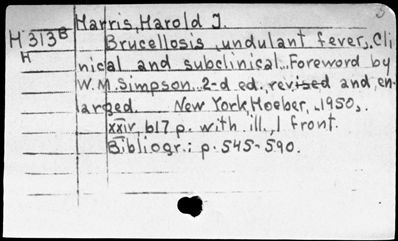 Harris, Harold J.
H 313B Brucellosis, undulant fever. Cli
H nical and subclinical. Foreword by
W.M. Simpson. 2-d ed. revised and en-
larged. New York, Hoeber, 1950,
xxiv, 617 p. with ill., 1 front.
Bibliogr.: p. 545-590.